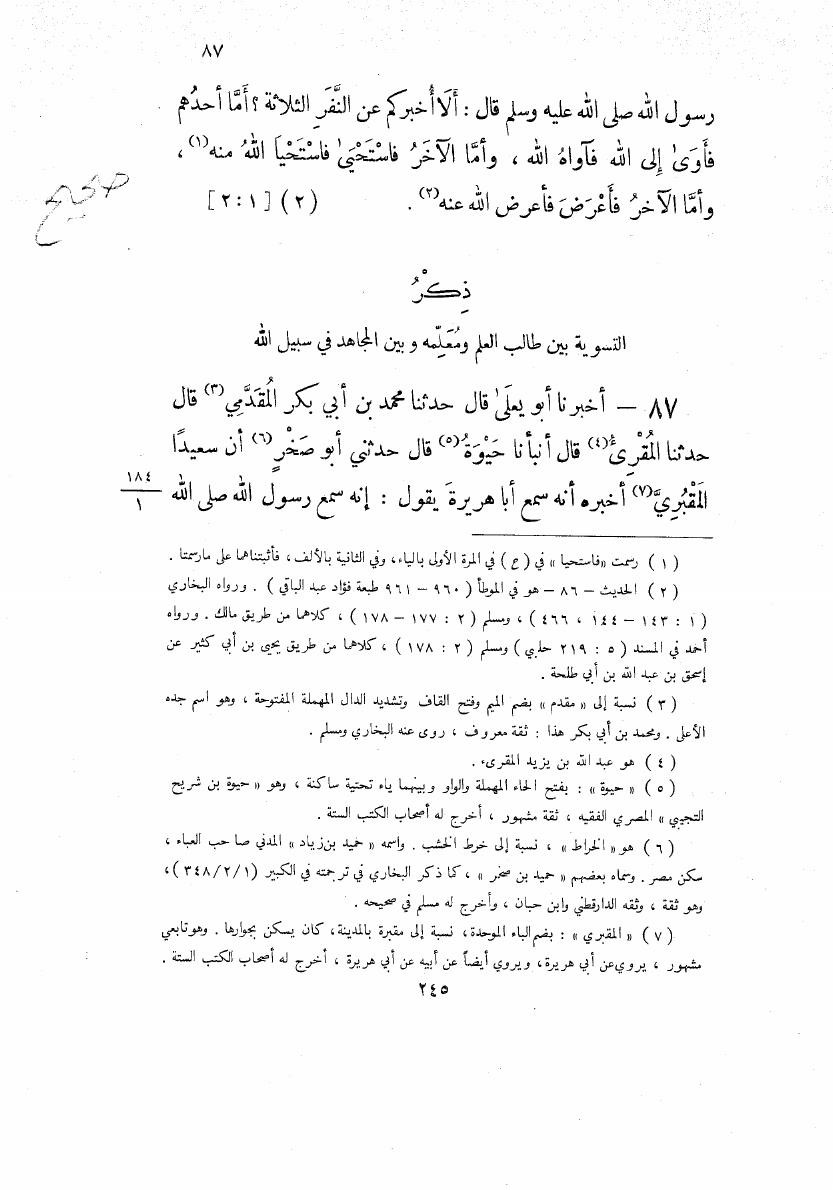 ٨٧
رسول الله صلى الله عليه وسلم قال : أَلَا أُخبركم عن النَّفَرِ الثلاثة ؟ أمَّا أحدُهم
فأَوَىٰ إلى الله فآواهُ الله ، وأمَّا الآخَرُ فاسْتَحْيَىٰ فاسْتَحْيَا اللهُ منه(١) ،
وأمَّا الآخرُ فأَعْرَضَ فأعرض الله عنه(٢) . (٢) [٢:١]
صحيح
ذِكْرُ
التسوية بين طالب العلم ومُعَلِّمه وبين المجاهد في سبيل الله
٨٧ — أخبرنا أبو يعلَىٰ قال حدثنا محمد بن أبي بكر المُقَدَّمِي(٣) قال
حدثنا المُقْرِئُ(٤) قال أنبأنا حَيْوَةُ(٥) قال حدثني أبو صَخْرٍ(٦) أن سعيدًا
المَقْبُرِيَّ(٧) أخبره أنه سمع أبا هريرةَ يقول : إنه سمع رسول الله صلى الله
١٨٤
١
(١) رسمت «فاستحيا» في (ع) في المرة الأولى بالياء، وفي الثانية بالألف، فأثبتناهما على مارسمتا .
(٢) الحديث – ٨٦ – هو في الموطأ (٩٦٠ – ٩٦١ طبعة فؤاد عبد الباقي) . ورواه البخاري
(١ : ١٤٣ – ١٤٤ ، ٤٦٦) ، ومسلم (٢ : ١٧٧ – ١٧٨) ، كلاهما من طريق مالك . ورواه
أحمد في المسند (٥ : ٢١٩ حلبي) ومسلم (٢ : ١٧٨) ، كلاهما من طريق يحيى بن أبي كثير عن
إسحق بن عبد الله بن أبي طلحة .
(٣) نسبة إلى «مقدم» بضم الميم وفتح القاف وتشديد الدال المهملة المفتوحة ، وهو اسم جده
الأعلى . ومحمد بن أبي بكر هذا : ثقة معروف ، روى عنه البخاري ومسلم .
(٤) هو عبد الله بن يزيد المقرىء .
(٥) «حيوة» : بفتح الحاء المهملة والواو وبينهما ياء تحتية ساكنة ، وهو «حيوة بن شريح
التجيبي» المصري الفقيه ، ثقة مشهور ، أخرج له أصحاب الكتب الستة .
(٦) هو «الخراط» ، نسبة إلى خرط الخشب . واسمه «حميد بن زياد» المدني صاحب العباء ،
سكن مصر . وسماه بعضهم «حميد بن صخر» ، كما ذكر البخاري في ترجمته في الكبير (٣٤٨/٢/١) ،
وهو ثقة ، وثقه الدارقطني وابن حبان ، وأخرج له مسلم في صحيحه .
(٧) «المقبري» : بضم الباء الموحدة، نسبة إلى مقبرة بالمدينة، كان يسكن بجوارها . وهو تابعي
مشهور ، يروي عن أبي هريرة، ويروي أيضاً عن أبيه عن أبي هريرة ، أخرج له أصحاب الكتب الستة .
٢٤٥